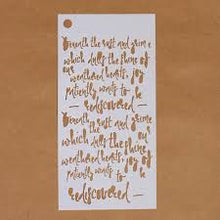 Beneath the rust and grime
which dulls the shine of
our
weathered hearts, joy
patiently waits to be
rediscovered —
Beneath the rust and grime
which dulls the shine of
our
weathered hearts, joy
patiently waits to be
— rediscovered —